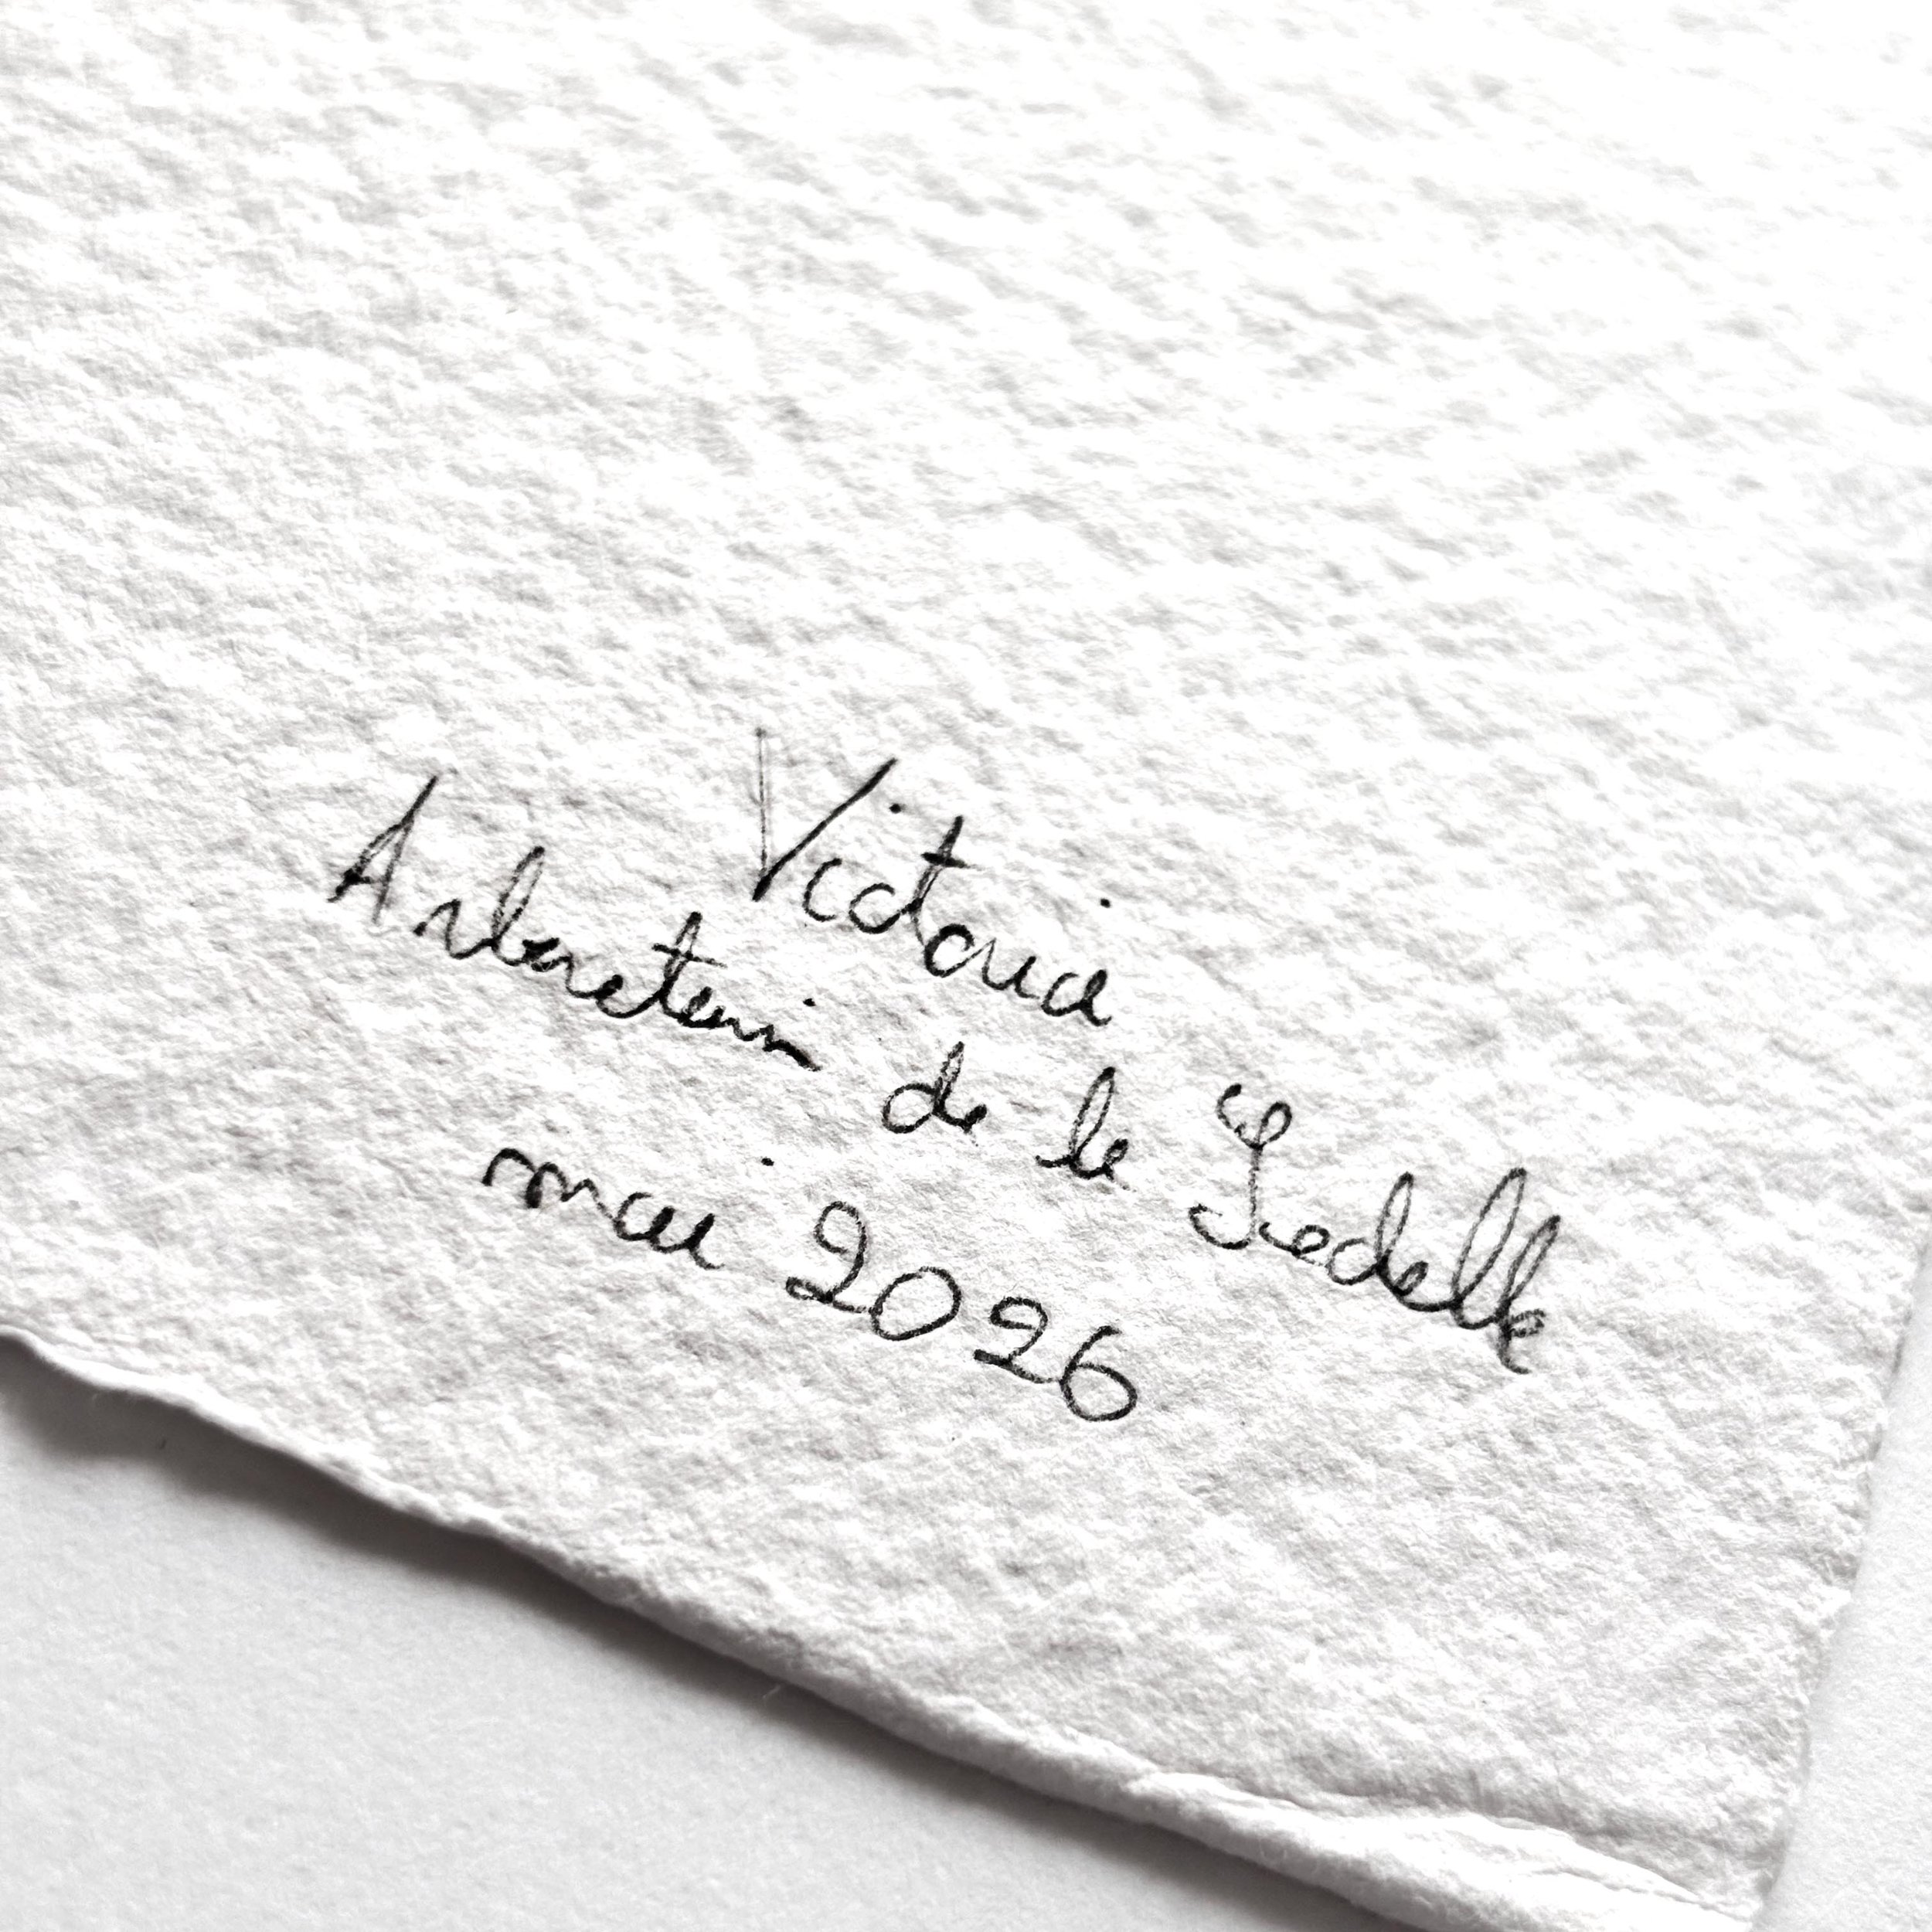 Victoria
Arboretum de la Sedelle
mai 2026